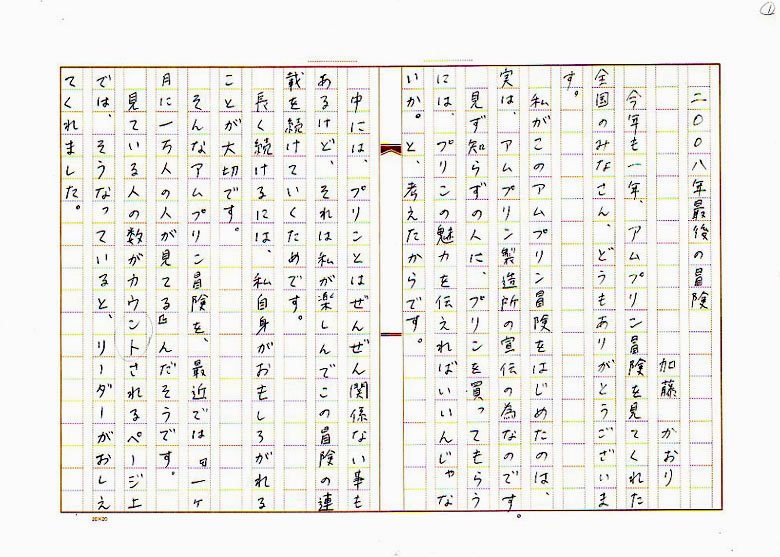 ①
二〇〇八年最後の冒険
加藤かおり
今年も一年、アムプリン冒険を見てくれた
全国のみなさん、どうもありがとうございま
す。
私がこのアムプリン冒険をはじめたのは、
実は、アムプリン製造所の宣伝の為なのです。
見ず知らずの人に、プリンを買ってもらう
には、プリンの魅力を伝えればいいんじゃな
いか。と、考えたからです。
中には、プリンとはぜんぜん関係ない事も
あるけど、それは私が楽しんでこの冒険の連
載を続けていくためです。
長く続けるには、私自身がおもしろがれる
ことが大切です。
そんなアムプリン冒険を、最近では「一ヶ
月に一万人の人が見てる」んだそうです。
見ている人の数がカウントされるページ上
では、そうなっていると、リーダーがおしえ
てくれました。
20×20